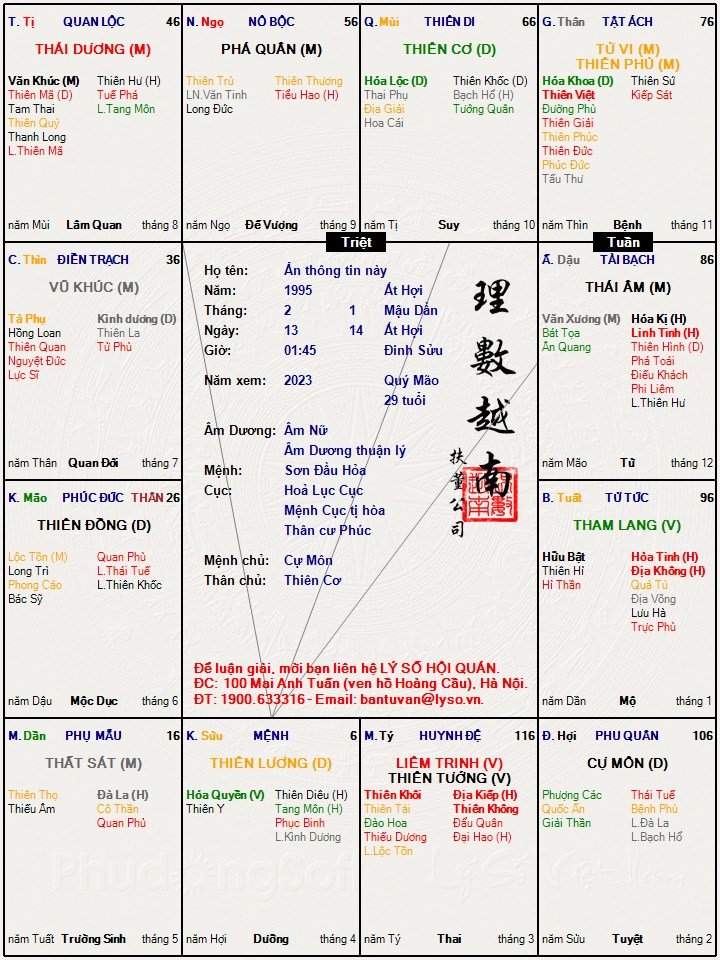 T. Tị QUAN LỘC 46
THÁI DƯƠNG (M)
Văn Khúc (M) Thiên Hư (H)
Thiên Mã (D) Tuế Phá
Tam Thai L.Tang Môn
Thiên Quý
Thanh Long
L.Thiên Mã
năm Mùi Lâm Quan tháng 8
N. Ngọ NÔ BỘC 56
PHÁ QUÂN (M)
Thiên Trù Thiên Thương
LN.Văn Tinh Tiểu Hao (H)
Long Đức
năm Ngọ Đế Vượng tháng 9
Q. Mùi THIÊN DI 66
THIÊN CƠ (D)
Hóa Lộc (D) Thiên Khốc (D)
Thai Phụ Bạch Hổ (H)
Địa Giải Tướng Quân
Hoa Cái
năm Tị Suy tháng 10
G. Thân TẬT ÁCH 76
TỬ VI (M)
THIÊN PHỦ (M)
Hóa Khoa (D) Thiên Sứ
Thiên Việt Kiếp Sát
Đường Phù
Thiên Giải
Thiên Phúc
Thiên Đức
Phúc Đức
Tấu Thư
năm Thìn Bệnh tháng 11
Triệt
Tuần
C. Thìn ĐIỀN TRẠCH 36
VŨ KHÚC (M)
Tả Phụ Kình dương (D)
Hồng Loan Thiên La
Thiên Quan Tử Phù
Nguyệt Đức
Lực Sĩ
năm Thân Quan Đới tháng 7
Họ tên: Ẩn thông tin này
Năm: 1995 Ất Hợi
Tháng: 2 1 Mậu Dần
Ngày: 13 14 Ất Hợi
Giờ: 01:45 Đinh Sửu
Năm xem: 2023 Quý Mão
29 tuổi
Âm Dương: Âm Nữ
Âm Dương thuận lý
Mệnh: Sơn Đầu Hỏa
Cục: Hoả Lục Cục
Mệnh Cục tị hòa
Thân cư Phúc
Mệnh chủ: Cự Môn
Thân chủ: Thiên Cơ
理數越南
扶董公司
Để luận giải, mời bạn liên hệ LÝ SỐ HỘI QUÁN.
ĐC: 100 Mai Anh Tuấn (ven hồ Hoàng Cầu), Hà Nội.
ĐT: 1900.633316 - Email: bantuvan@lyso.vn.
Ấ. Dậu TÀI BẠCH 86
THÁI ÂM (M)
Văn Xương (M) Hóa Kị (H)
Bát Tọa Linh Tinh (H)
Ân Quang Thiên Hình (D)
Phá Toái
Điếu Khách
Phi Liêm
L.Thiên Hư
năm Mão Tử tháng 12
K. Mão PHÚC ĐỨC THÂN 26
THIÊN ĐỒNG (D)
Lộc Tồn (M) Quan Phù
Long Trì L.Thái Tuế
Phong Cáo L.Thiên Khốc
Bác Sỹ
năm Dậu Mộc Dục tháng 6
B. Tuất TỬ TỨC 96
THAM LANG (V)
Hữu Bật Hỏa Tinh (H)
Thiên Hỉ Địa Không (H)
Hỉ Thần Quả Tú
Địa Võng
Lưu Hà
Trực Phù
năm Dần Mộ tháng 1
M. Dần PHỤ MẪU 16
THẤT SÁT (M)
Thiên Thọ Đà La (H)
Thiếu Âm Cô Thần
Quan Phủ
năm Tuất Trường Sinh tháng 5
K. Sửu MỆNH 6
THIÊN LƯƠNG (D)
Hóa Quyền (V) Thiên Diêu (H)
Thiên Y Tang Môn (H)
Phục Binh
L.Kình Dương
năm Hợi Dưỡng tháng 4
M. Tý HUYNH ĐỆ 116
LIÊM TRINH (V)
THIÊN TƯỚNG (V)
Thiên Khôi Địa Kiếp (H)
Thiên Tài Thiên Không
Đào Hoa Đẩu Quân
Thiếu Dương Đại Hao (H)
L.Lộc Tồn
năm Tý Thai tháng 3
Đ. Hợi PHU QUÂN 106
CỰ MÔN (D)
Phượng Các Thái Tuế
Quốc Ấn Bệnh Phù
Giải Thần L.Đà La
L.Bạch Hổ
năm Sửu Tuyệt tháng 2